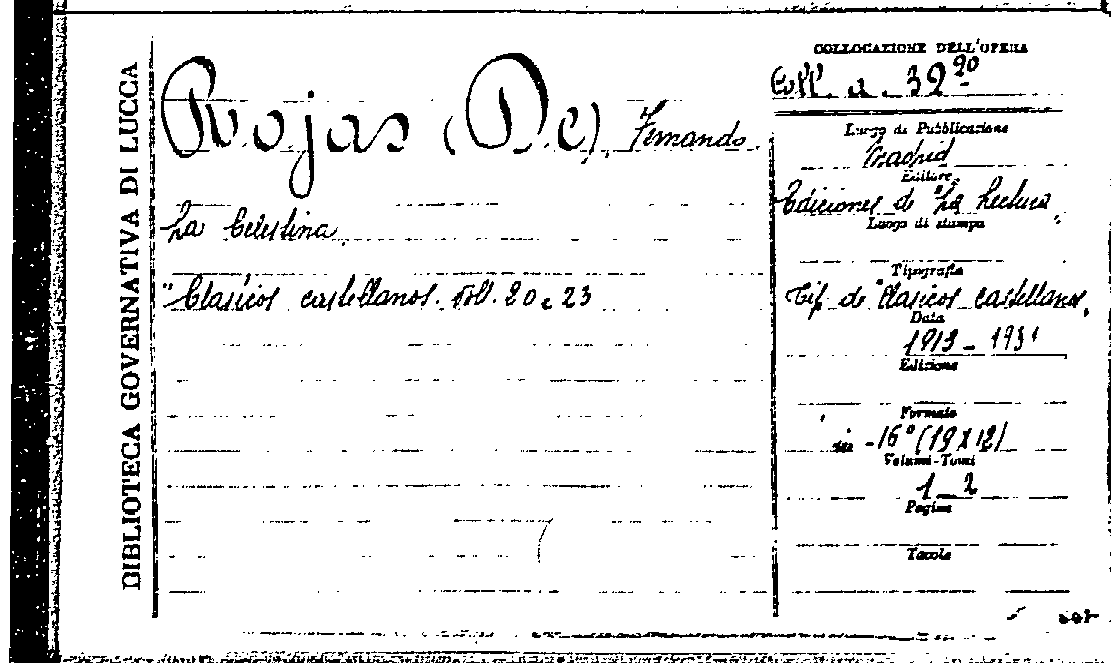 BIBLIOTECA GOVERNATIVA DI LUCCA
Rojas (De), Fernando.
La Celestina.
"Clasicos castellanos. Voll. 20 e 23
COLLOCAZIONE DELL'OPERA
Coll. a. 32 20
Luogo di Pubblicazione
Madrid
Editore
Ediciones de "La Lectura"
Luogo di stampa
Tipografia
Tip. de "Clasicos castellanos"
Data
1913 - 1931
Edizione
Formato
in -16° (19 X 12)
Volumi-Tomi
1 - 2
Pagine
Tavole